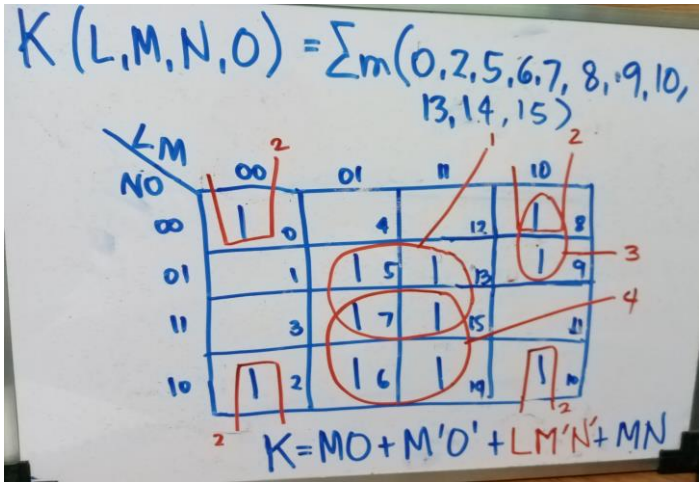 K (L,M,N,O) = Σm(0,2,5,6,7, 8, 9,10,
13,14,15)
1
LM
2
2
NO
00
01
11
10
00
1
0
4
12
1
8
01
1
1
5
1
13
1
9
3
11
3
1
7
1
15
11
4
10
1
2
1
6
1
14
1
10
2
2
K=MO+M'O'+LM'N'+MN